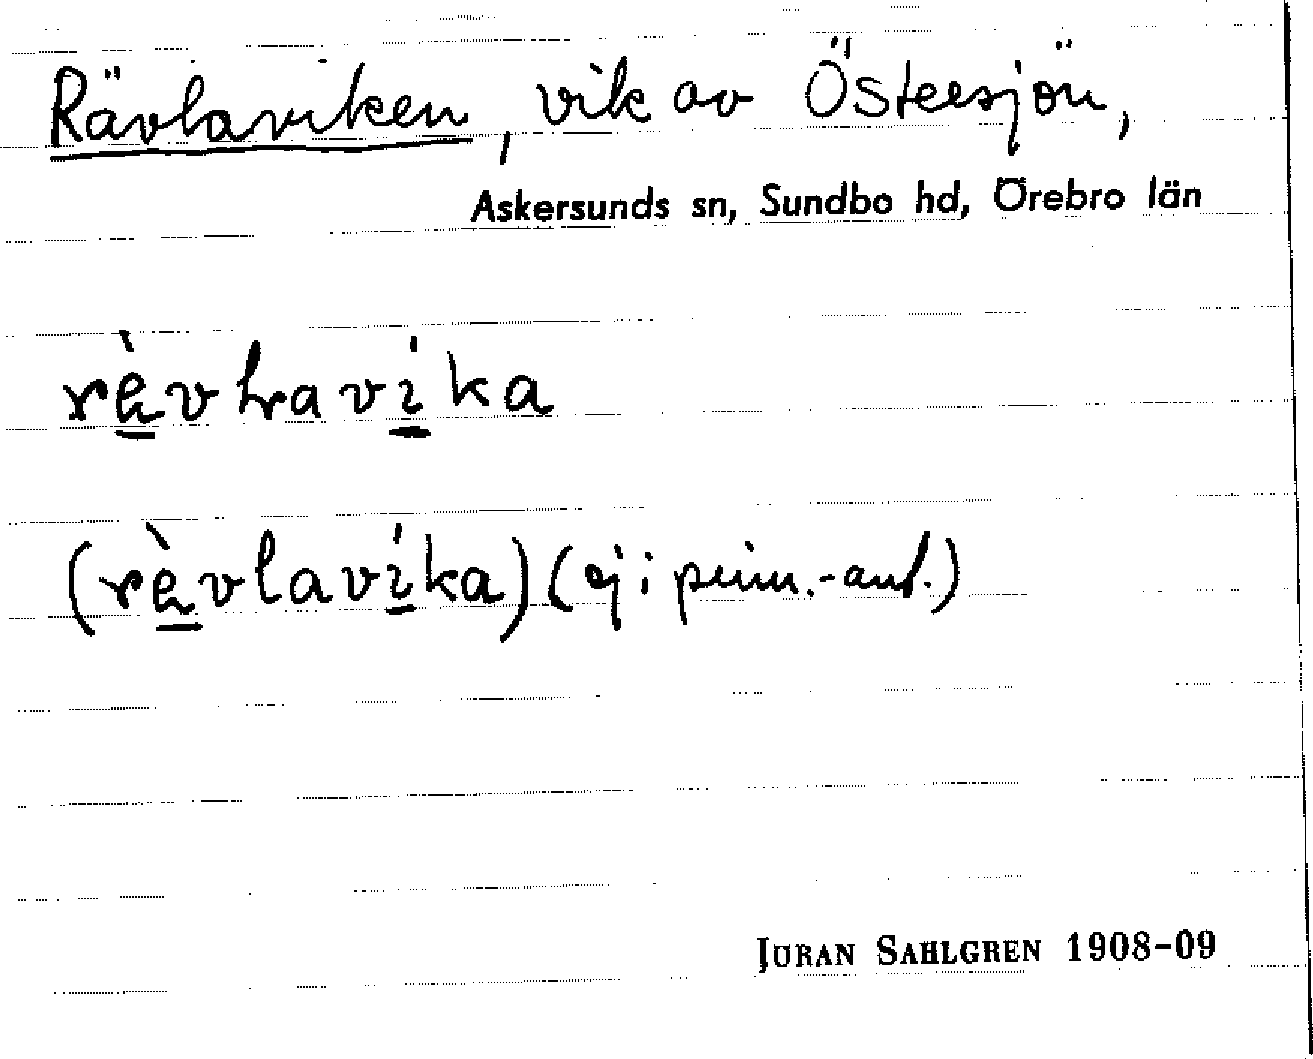 Rävlaviken, vik av Östersjön,
Askersunds sn, Sundbo hd, Örebro län
rὲvłravíka
(rὲvlavíka) (ej i prim.-ant.)
JÖRAN SAHLGREN 1908-09